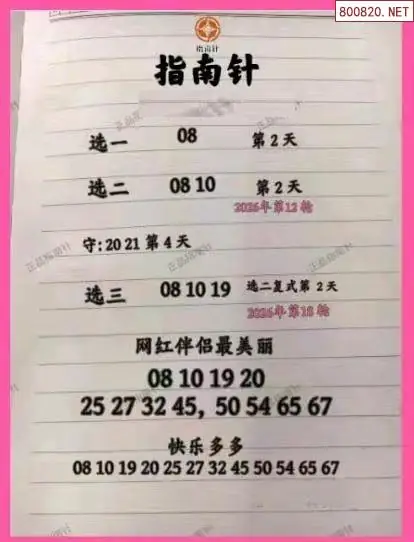 800820.NET
指南针
指南针
选一 08 第2天
选二 08 10 第2天
2026年第12轮
守:20 21 第4天
选三 08 10 19 选二复式第 2天
2026年第18轮
网红伴侣最美丽
08 10 19 20
25 27 32 45, 50 54 65 67
快乐多多
08 10 19 20 25 27 32 45 50 54 65 67